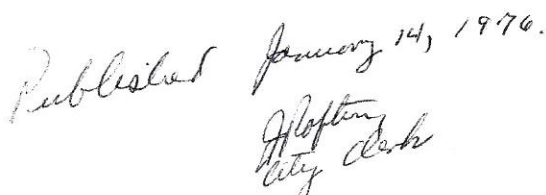 Published January 14, 1976.
City Clerk